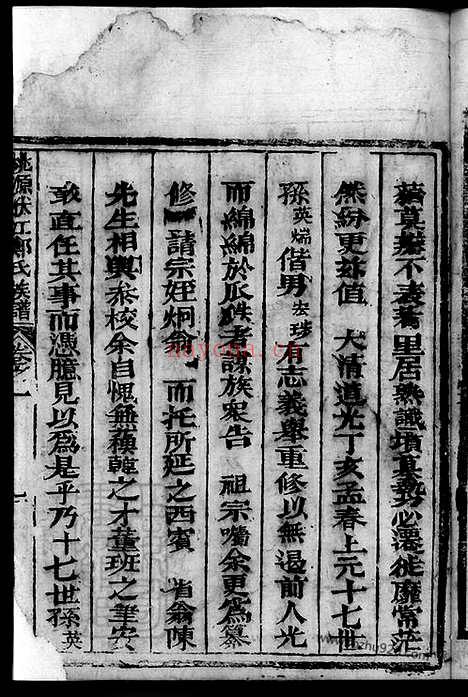 莫辨不表舊里居無識墳真藐必遷徙靡常茫
然紛更茲值 大清道光丁亥孟春上元十七世
孫英煓偕男去瑛有志義舉重修以無遏前人光
而綿綿於瓜瓞者謀族眾告 祖宗囑余更為纂
修一請宗姪炯翁 而托所延之西賓 省翁陳
先生相與參校余自愧無穎韓之才董班之筆安
敢直任其事而憑臆見以為是乎乃十七世孫英
桃源狀江鄭氏族譜
nayona.cn